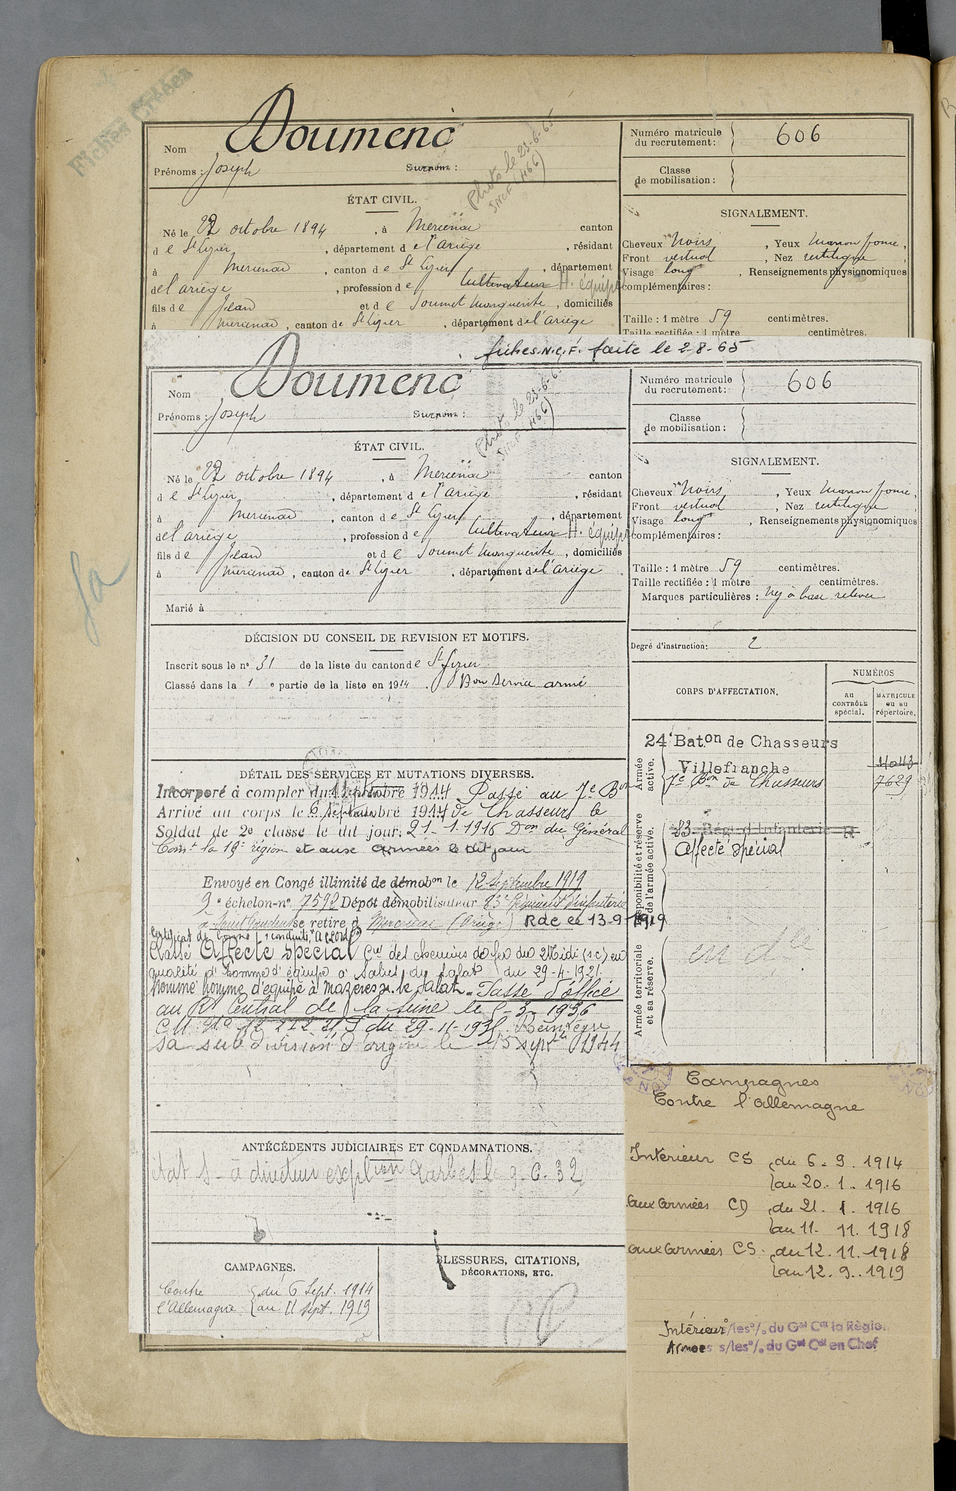 Fiches Créées
Nom Doumenc
Prénoms : Joseph Surnom :
Photo le 23-6-65
SNCF 466
ÉTAT CIVIL.
Né le 22 octobre 1894, à Mercenac canton
d e St Lizier, département d e l'ariège, résidant
à Mercenac, canton d e St Lizier, département
de l'ariège, profession d e cultivateur H. équipe
fils d e Jean et d e Soumet Marguerite, domiciliés
à Mercenac, canton de St Lizier, département de l'ariège
Numéro matricule
du recrutement : 606
Classe
de mobilisation :
SIGNALEMENT.
Cheveux Noirs, Yeux marron foncé,
Front vertical, Nez rectiligne,
Visage long, Renseignements physionomiques
complémentaires :
Taille : 1 mètre 59 centimètres.
Taille rectifiée : 1 mètre centimètres.
fiches N.C.F. faite le 2-8-65
Nom Doumenc
Prénoms : Joseph Surnom :
Photo le 23-6-6
SNCF 466
ÉTAT CIVIL.
Né le 22 octobre 1894, à Mercenac canton
d e St Lizier, département d e l'ariège, résidant
à Mercenac, canton d e St Lizier, département
de l'ariège, profession d e cultivateur H. équipe
fils d e Jean et d e Soumet Marguerite, domiciliés
à Mercenac, canton de St Lizier, département de l'ariège
Marié à
Numéro matricule
du recrutement : 606
Classe
de mobilisation :
SIGNALEMENT.
Cheveux Noirs, Yeux marron foncé,
Front vertical, Nez rectiligne,
Visage long, Renseignements physionomiques
complémentaires :
Taille : 1 mètre 59 centimètres.
Taille rectifiée : 1 mètre centimètres.
Marques particulières : Nez à base relevée
Degré d'instruction : 2
DÉCISION DU CONSEIL DE REVISION ET MOTIFS.
Inscrit sous le n° 31 de la liste du canton de St Lizier
Classé dans la 1e partie de la liste en 1914 Bon Service armé
CORPS D'AFFECTATION.
NUMÉROS
AU CONTRÔLE spécial.
MATRICULE ou au répertoire.
Armée active.
24e Baton de Chasseurs
Villefranche
7e Bon de Chasseurs 7629
Disponibilité et réserve de l'armée active.
83 Régt d'Infanterie R
Affecté Spécial
Armée territoriale et sa réserve.
DÉTAIL DES SERVICES ET MUTATIONS DIVERSES.
Incorporé à compter du 1 Septembre 1914 Passé au 7e Bon
Arrivé au corps le 6 septembre 1914 de Chasseurs le
Soldat de 2e classe le dit jour. 21-1-1916 Don du Général
Comt la 19e région et aux armées le dit jour
Envoyé en Congé illimité de démobon le 12 Septembre 1919
9e échelon-n° 7592 Dépôt démobilisateur 83e Régiment d'infanterie
à Saint Gaudens se retire à Mercenac (Ariège) Rdc le 13-9-1919
Certificat de bonne conduite "Accordé"
Classé Affecté spécial Cie des chemins de fer du Midi (sc) en
qualité d'homme d'équipe à Salies du Salat du 29-4-1921.
homme d'équipe à Mazères sur le Salat. Passé d'office
au Rt Central de la Seine le 1-3-1936
C.M. du 29-11-1938. Réintègre
sa subdivision d'origine le 15 septe 1944
ANTÉCÉDENTS JUDICIAIRES ET CONDAMNATIONS.
état S - à directeur explion Tarbes le 9-6-32
CAMPAGNES.
Contre du 6 Sept. 1914
l'Allemagne au 11 sept. 1919
BLESSURES, CITATIONS,
DÉCORATIONS, ETC.
Campagnes
Contre l'allemagne
Intérieur CS du 6. 9. 1914
au 20. 1. 1916
aux armées CD du 21. 1. 1916
au 11. 11. 1918
aux armées CS. du 12. 11. 1918
au 12. 9. 1919
Intérieur s/les o/. du Gal Ct la Région
Armées s/les o/. du Gal Ct en Chef